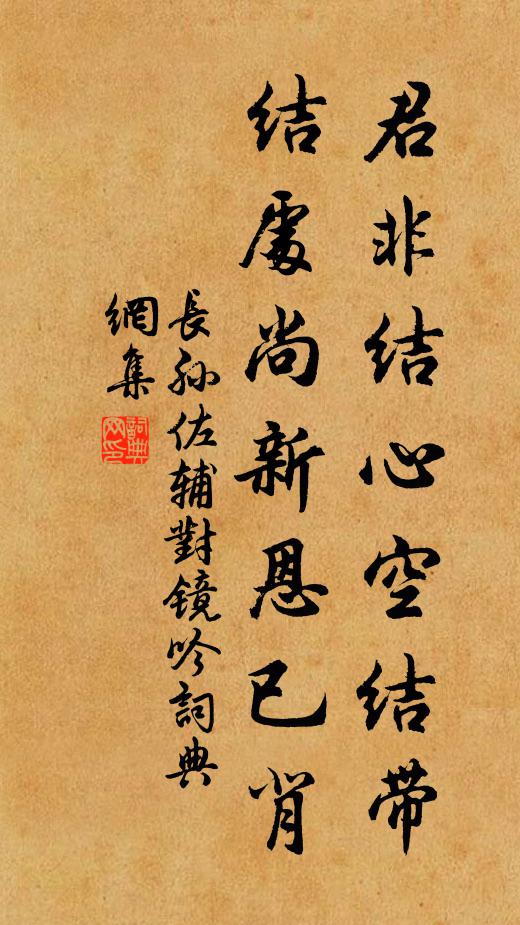 君非结心空结带
结處尚新恩已背
長孙佐辅對镜吟詞典
網集
詞典网印